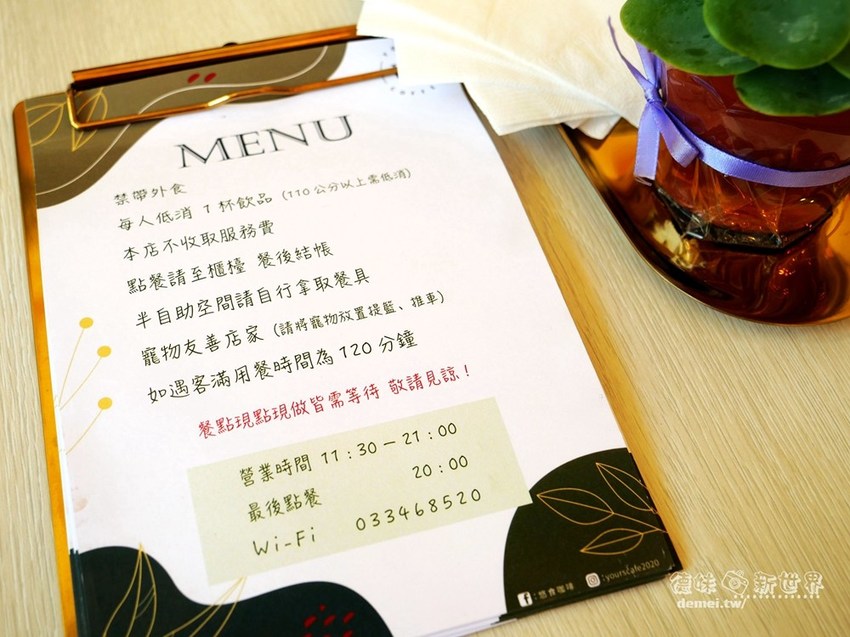 MENU
禁帶外食
每人低消 1 杯飲品 (110 公分以上需低消)
本店不收取服務費
點餐請至櫃檯 餐後結帳
半自助空間請自行拿取餐具
寵物友善店家 (請將寵物放置提籃、推車)
如遇客滿用餐時間為 120 分鐘
餐點現點現做皆需等待 敬請見諒！
營業時間 11：30－21：00
最後點餐 20：00
Wi-Fi 033468520
：悠食咖啡 ：yourscafe2020
德味 新世界
demei.tw/